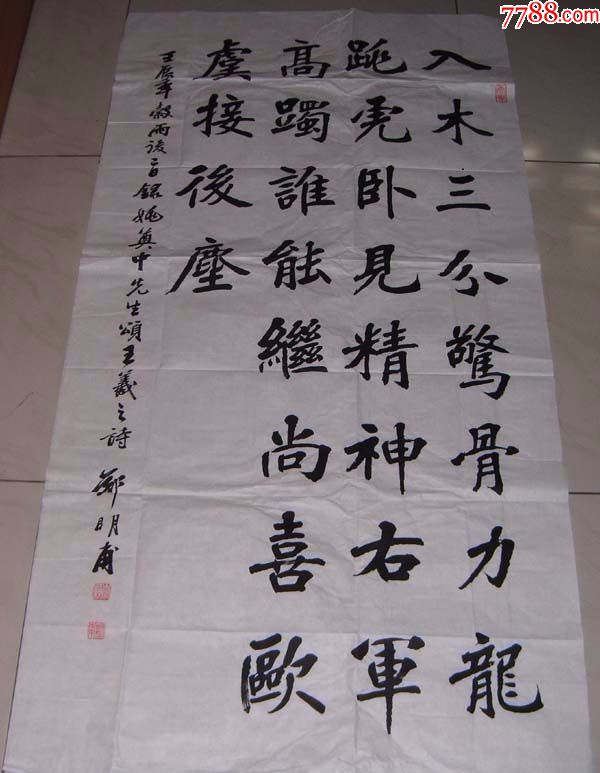 入木三分驚骨力龍
跳虎卧見精神右軍
高躅誰能繼尚喜歐
虞接後塵
壬辰年穀雨後二日錄姚奠中先生頌王羲之詩 鄭明甫
7788.com